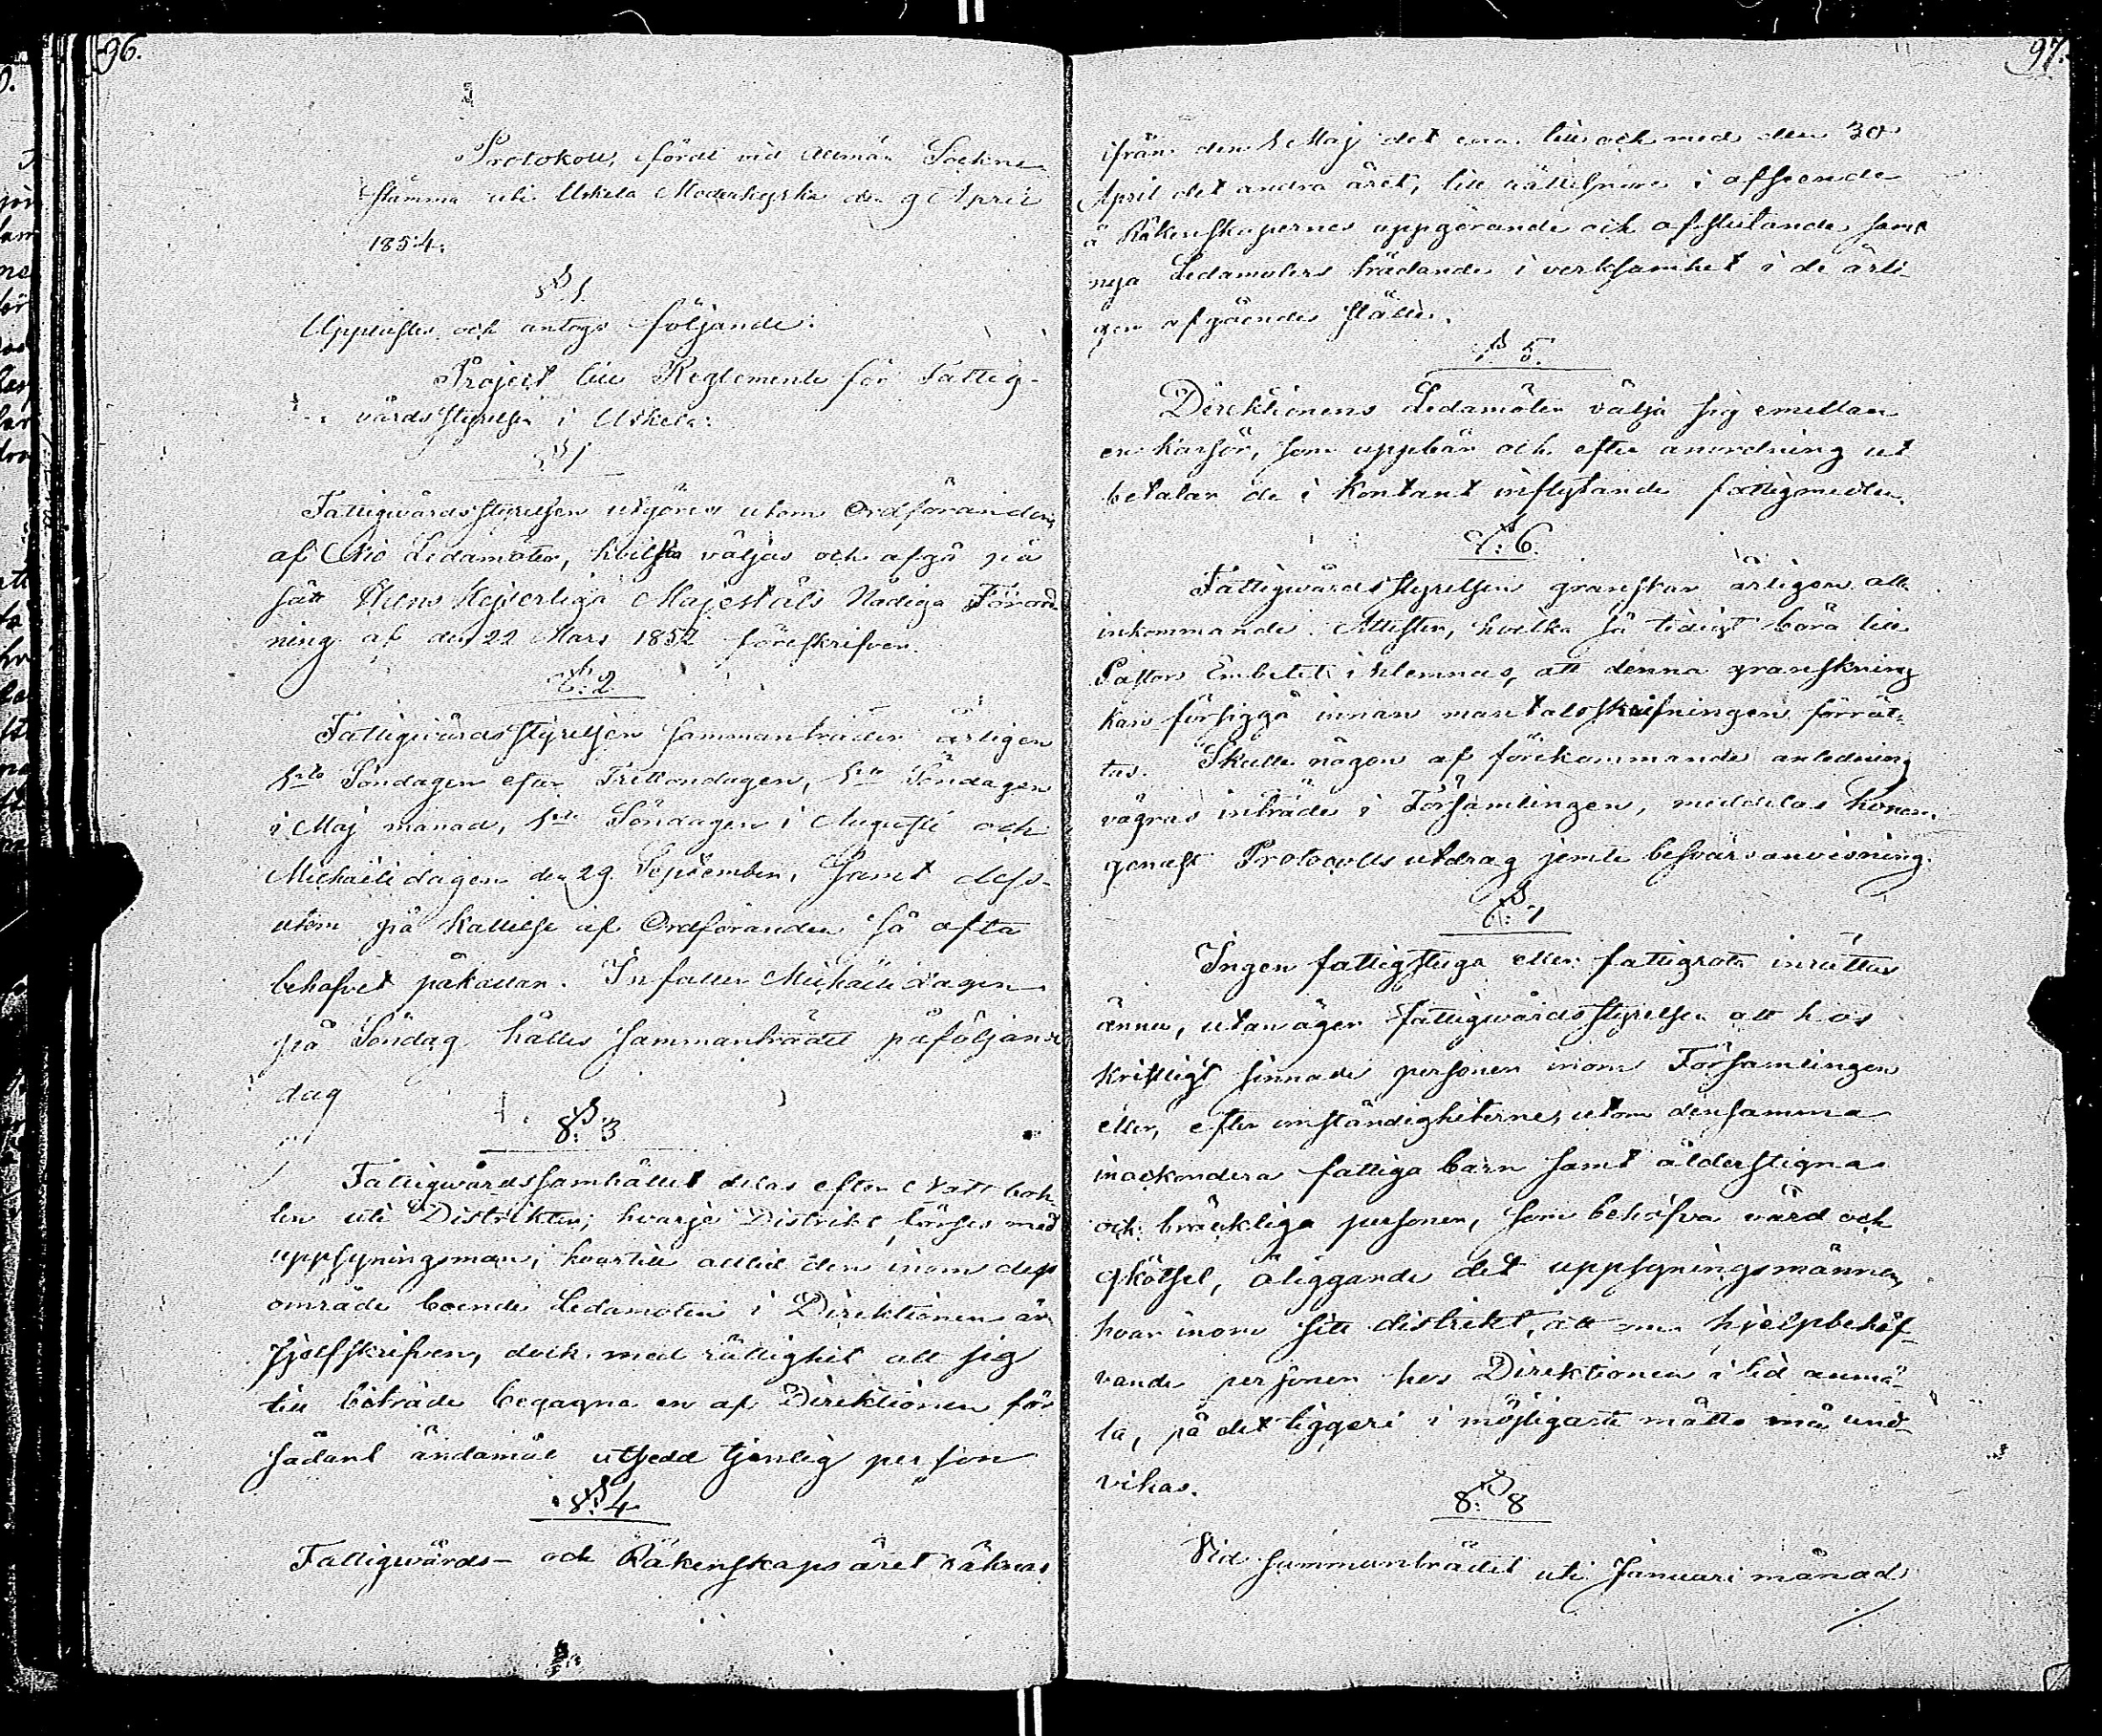 96.
Protokoll, fördt vid Allmän Sockne
stämma uti Uskela Moderkyrka den 9 April
1854.
§ 1
Upplästes och antogs följande:
Project till Reglemente för Fattig-
vårdsstyrelsen i Uskela:
§ 1
Fattigwårdsstyrelsen utgöres utom Ordföranden,
af Nio Ledamöter, hvilka väljas och afgå på
sätt Hans Kejserliga Majestäts Nådiga Förord
ning af den 22 Mars 1852 föreskrifver.
§: 2
Fattigwårdsstyrelsen sammanträder årligen
1sta Söndagen efter Trettondagen, 1sta Söndagen
i Maj månad, 1sta Söndagen i Augusti och
Michaëli dagen den 29 September, samt dess-
utom på kallelse af Ordföranden så ofta
behofvet påkallar. Infaller Michaëli dagen
på Söndag hålles sammanträdet påföljande
dag
§: 3
Fattigwårdssamhället delas efter
uti Distrikter; hvarje Distrikt förses med
uppsyningsman, hvartill alltid den inom dess
område boende Ledamoten i Direktionen är
sjelfskrifven, dock med rättighet att sig
till biträde begagna en af Direktionen för
sådant ändamål utsedd tjenlig person
§: 4
Fattigwårds- och Räkenskapsåret räknas
97.
ifrån den 1 Maj det ena till och med den 30
April det andra året, till rättelse i afseende
å Räkenskapernes uppgörande och afslutande samt
nya Ledamöters trädande i verksamhet i de årli-
gen afgåendes ställe.
§ 5.
Direktionens Ledamöter välja sig emellan
en kassör, som uppbär och efter anordning ut
betalar de i kontant inflytande fattigmedlen.
§: 6.
Fattigwårdsstyrelsen granskar årligen alla
inkommande Attester, hvilka så tidigt böra till
Pastors Embetet inlemnas, att denna granskning
kan försiggå innan mantalsskrifningen förrät-
tas. Skulle någon af förekommande anledning
vägras inträde i Församlingen, meddelas honom
genast Protocolls utdrag jemte besvärsanvisning.
§: 7
Ingen fattigstuga eller fattigrota inrättas
ännu, utan äger Fattigwårdsstyrelsen att hos
kristligt sinnade personer inom Församlingen
eller, efter omständigheterne, utom densamma
inackordera fattiga barn samt ålderstigna
och bräckliga personer, som behöfva vård och
skötsel, åliggande det uppsyningsmännen,
hvar inom sitt distrikt, att om hjelpbehöf-
vande personer hos Direktionen i tid anmä-
la, på det tiggeri i möjligaste måtto må und-
vikas.
§: 8
Vid sammanträdet uti Januari månad